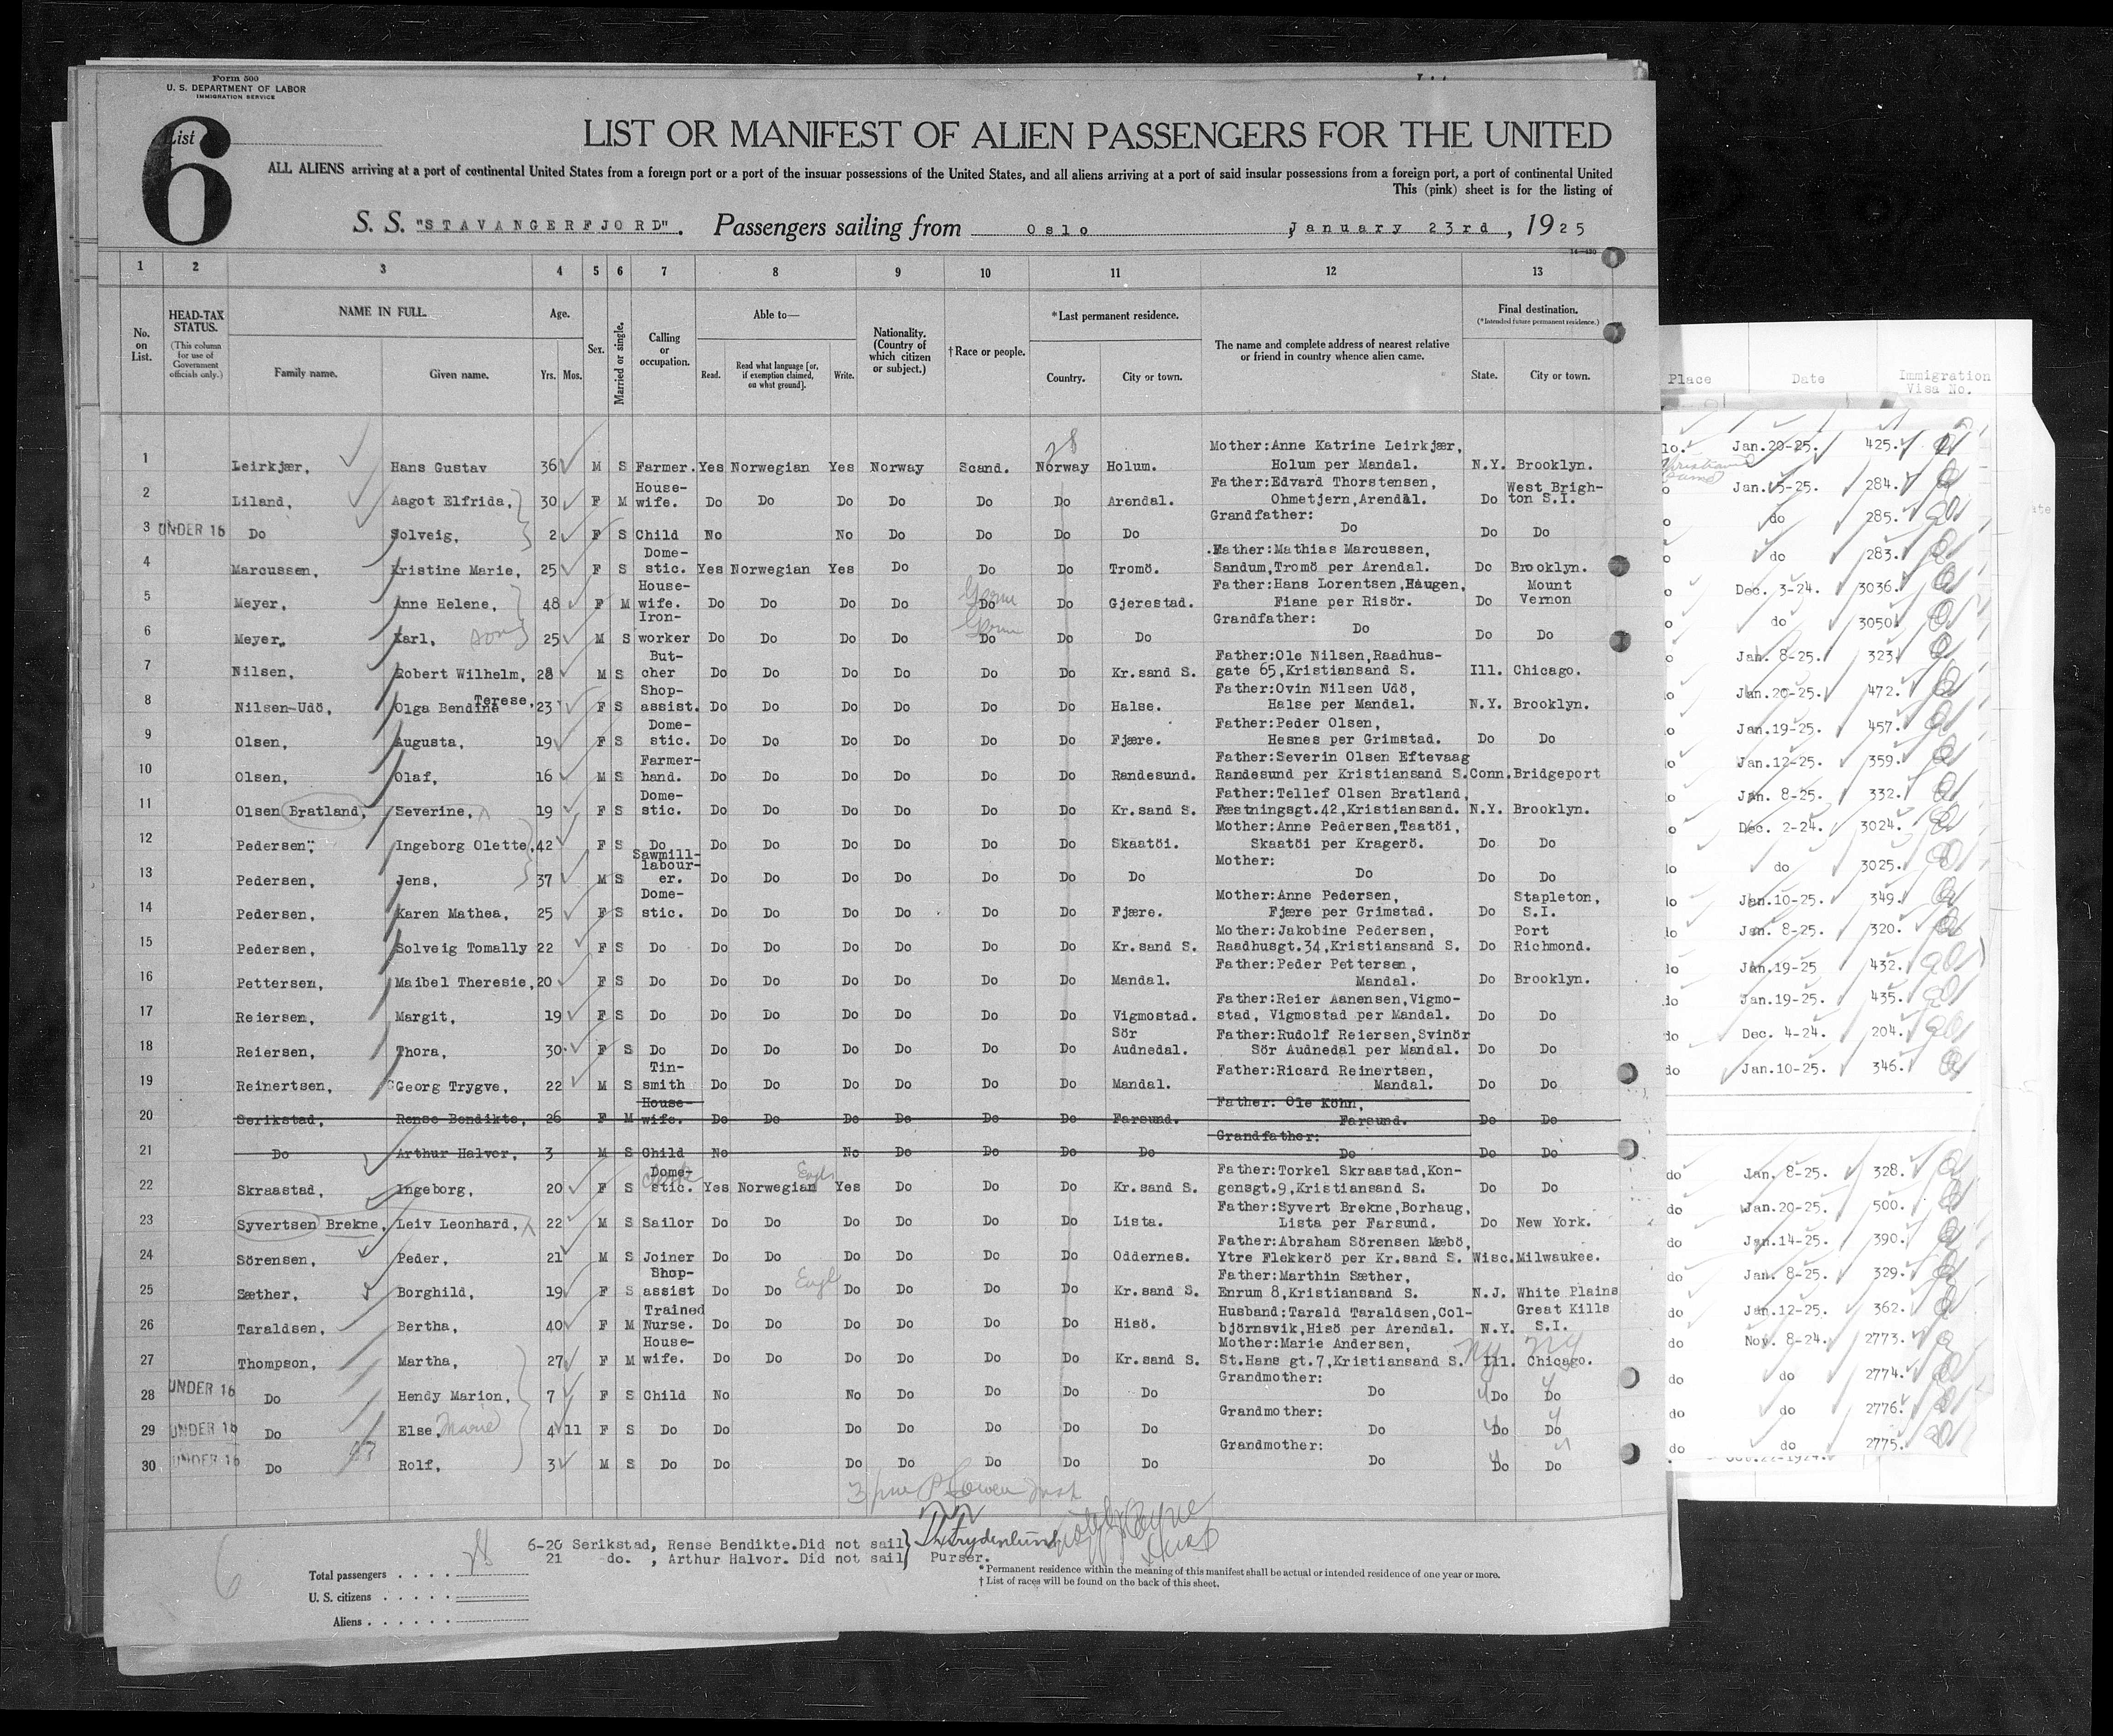 Form 500
U. S. DEPARTMENT OF LABOR
IMMIGRATION SERVICE
List
6
LIST OR MANIFEST OF ALIEN PASSENGERS FOR THE UNITED
ALL ALIENS arriving at a port of continental United States from a foreign port or a port of the insular possessions of the United States, and all aliens arriving at a port of said insular possessions from a foreign port, a port of continental United
This (pink) sheet is for the listing of
S. S. "STAVANGERFJORD". Passengers sailing from Oslo January 23rd, 1925
1 2 3 4 5 6 7 8 9 10 11 12 13
No. on List. HEAD-TAX STATUS. (This column for use of Government officials only.) NAME IN FULL. Family name. Given name. Age. Yrs. Mos. Sex. Married or single. Calling or occupation. Able to— Read. Read what language [or, if exemption claimed, on what ground]. Write. Nationality. (Country of which citizen or subject.) †Race or people. *Last permanent residence. Country. City or town. The name and complete address of nearest relative or friend in country whence alien came. Final destination. (*Intended future permanent residence.) State. City or town.
Place Date Immigration Visa No.
28
1 Leirkjær, Hans Gustav 36 M S Farmer. Yes Norwegian Yes Norway Scand. Norway Holum. Mother:Anne Katrine Leirkjær, Holum per Mandal. N.Y. Brooklyn. lo. Jan.20-25. 425.
2 Liland, Aagot Elfrida, 30 F M House-wife. Do Do Do Do Do Do Arendal. Father:Edvard Thorstensen, Ohmetjern,Arendal. Do West Brigh-ton S.I. Jan.15-25. 284.
3 UNDER 16 Do Solveig, 2 F S Child No No Do Do Do Do Grandfather: Do Do Do do 285.
4 Marcussen, Kristine Marie, 25 F S Dome-stic. Yes Norwegian Yes Do Do Do Tromö. Father:Mathias Marcussen, Sandum,Tromö per Arendal. Do Brooklyn. do 283.
5 Meyer, Anne Helene, 48 F M House-wife. Do Do Do Do Do Germ Do Gjerestad. Father:Hans Lorentsen,Haugen, Fiane per Risör. Do Mount Vernon Dec. 3-24. 3036.
6 Meyer, Karl, son 25 M S Iron-worker Do Do Do Do Do Germ Do Do Grandfather: Do Do Do do 3050
7 Nilsen, Robert Wilhelm, 28 M S But-cher Do Do Do Do Do Do Kr.sand S. Father:Ole Nilsen,Raadhus-gate 65,Kristiansand S. Ill. Chicago. Jan. 8-25. 323
8 Nilsen-Udö, Olga Bendine Terese, 23 F S Shop-assist. Do Do Do Do Do Do Halse. Father:Ovin Nilsen Udö, Halse per Mandal. N.Y. Brooklyn. Jan.20-25. 472.
9 Olsen, Augusta, 19 F S Dome-stic. Do Do Do Do Do Do Fjære. Father:Peder Olsen, Hesnes per Grimstad. Do Do Jan.19-25. 457.
10 Olsen, Olaf, 16 M S Farmer-hand. Do Do Do Do Do Do Randesund. Father:Severin Olsen Eftevaag Randesund per Kristiansand S. Conn. Bridgeport Jan.12-25. 359.
11 Olsen Bratland, Severine, 19 F S Dome-stic. Do Do Do Do Do Do Kr.sand S. Father:Tellef Olsen Bratland, Fæstningsgt.42,Kristiansand. N.Y. Brooklyn. Jan. 8-25. 332.
12 Pedersen, Ingeborg Olette, 42 F S Do Do Do Do Do Do Do Skaatöi. Mother:Anne Pedersen,Taatöi, Skaatöi per Kragerö. Do Do Dec. 2-24. 3024.
13 Pedersen, Jens, 37 M S Sawmill-labour-er. Do Do Do Do Do Do Do Mother: Do Do Do do 3025.
14 Pedersen, Karen Mathea, 25 F S Dome-stic. Do Do Do Do Do Do Fjære. Mother:Anne Pedersen, Fjære per Grimstad. Do Stapleton, S.I. Jan.10-25. 349.
15 Pedersen, Solveig Tomally 22 F S Do Do Do Do Do Do Do Kr.sand S. Mother:Jakobine Pedersen, Raadhusgt.34,Kristiansand S. Do Port Richmond. Jan. 8-25. 320.
16 Pettersen, Maibel Theresie, 20 F S Do Do Do Do Do Do Do Mandal. Father:Peder Pettersen, Mandal. Do Brooklyn. do Jan.19-25 432.
17 Reiersen, Margit, 19 F S Do Do Do Do Do Do Do Vigmostad. Father:Reier Aanensen,Vigmo-stad, Vigmostad per Mandal. Do Do do Jan.19-25. 435.
18 Reiersen, Thora, 30 F S Do Do Do Do Do Do Do Sör Audnedal. Father:Rudolf Reiersen,Svinör Sör Audnedal per Mandal. Do Do do Dec. 4-24. 204.
19 Reinertsen, Georg Trygve, 22 M S Tin-smith Do Do Do Do Do Do Mandal. Father:Ricard Reinertsen, Mandal. Do Do do Jan.10-25. 346.
20 Serikstad, Rense Bendikte, 26 F M House-wife. Do Do Do Do Do Do Farsund. Father: Ole Köhn, Farsund. Do Do
21 Do Arthur Halvor, 3 M S Child No No Do Do Do Do Grandfather: Do Do Do
22 Skraastad, Ingeborg, 20 F S Dome-stic. Yes Norwegian Engl Yes Do Do Do Kr.sand S. Father:Torkel Skraastad,Kon-gensgt.9,Kristiansand S. Do Do do Jan. 8-25. 328.
23 Syvertsen Brekne, Leiv Leonhard, 22 M S Sailor Do Do Do Do Do Do Lista. Father:Syvert Brekne,Borhaug, Lista per Farsund. Do New York. do Jan.20-25. 500.
24 Sörensen, Peder, 21 M S Joiner Do Do Do Do Do Do Oddernes. Father:Abraham Sörensen Mæbö, Ytre Flekkerö per Kr.sand S. Wisc. Milwaukee. do Jan.14-25. 390.
25 Sæther, Borghild, 19 F S Shop-assist Do Do Engl Do Do Do Do Kr.sand S. Father:Marthin Sæther, Enrum 8,Kristiansand S. N.J. White Plains do Jan. 8-25. 329.
26 Taraldsen, Bertha, 40 F M Trained Nurse. Do Do Do Do Do Do Hisö. Husband:Tarald Taraldsen,Col-björnsvik,Hisö per Arendal. N.Y. Great Kills S.I. do Jan.12-25. 362.
27 Thompson, Martha, 27 F M House-wife. Do Do Do Do Do Do Kr.sand S. Mother:Marie Andersen, St.Hans gt.7,Kristiansand S. Ill. NY Chicago. NY do Nov. 8-24. 2773.
28 UNDER 16 Do Hendy Marion, 7 F S Child No No Do Do Do Do Grandmother: Do Do Do do do 2774.
29 UNDER 16 Do Else, Marie 4 11 F S Do Do Do Do Do Do Do Grandmother: Do Do Do do do 2776.
30 UNDER 16 Do Rolf, 3 M S Do Do Do Do Do Do Do Grandmother: Do Do Do do do 2775.
6-20 Serikstad, Rense Bendikte. Did not sail
21 do. , Arthur Halvor. Did not sail Purser.
6
Total passengers . . . . 28
U. S. citizens . . . . .
Aliens . . . . . .
* Permanent residence within the meaning of this manifest shall be actual or intended residence of one year or more.
† List of races will be found on the back of this sheet.